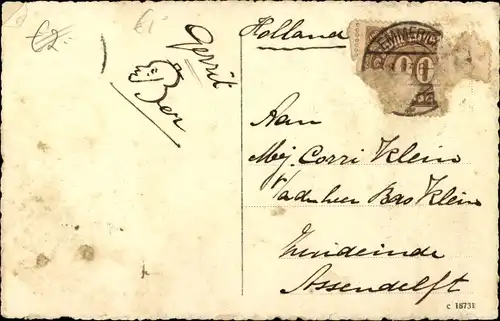 €2-
€
Gerrit
Ber
Holland
EMMERICH
Aan
Mej. Corri Klein
p/a den heer Bas Klein
Zuideinde
Assendelft
c 18731